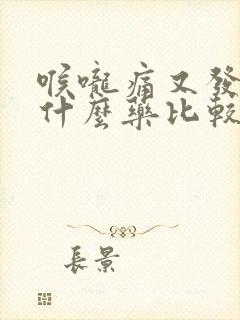 喉嚨痛又發
什麼藥比較
長景